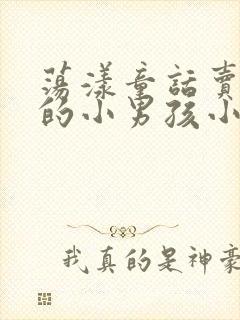 蕩漾童話賣
的小男孩小
我真的是神豪